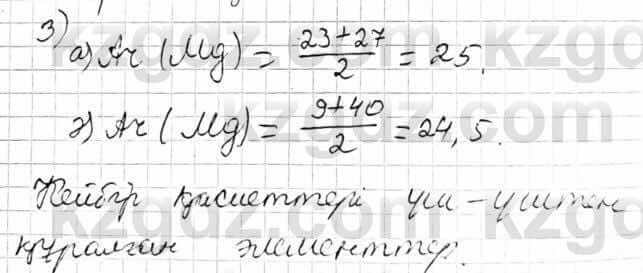 3)
а) Ar (Mg) = (23+27)/2 = 25.
ә) Ar (Mg) = (9+40)/2 = 24,5.
Кейбір қасиеттері үш-үштен
құралған элементтер.